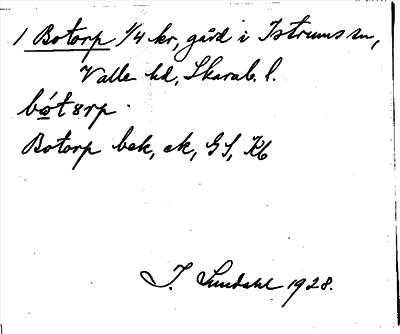 1 Botorp 1/4 kr, gård i Istrums sn,
Valle hd, Skarab. l.
bo´t8rp.
Botorp bek, ek, GS, Kb
I. Lundahl 1928.